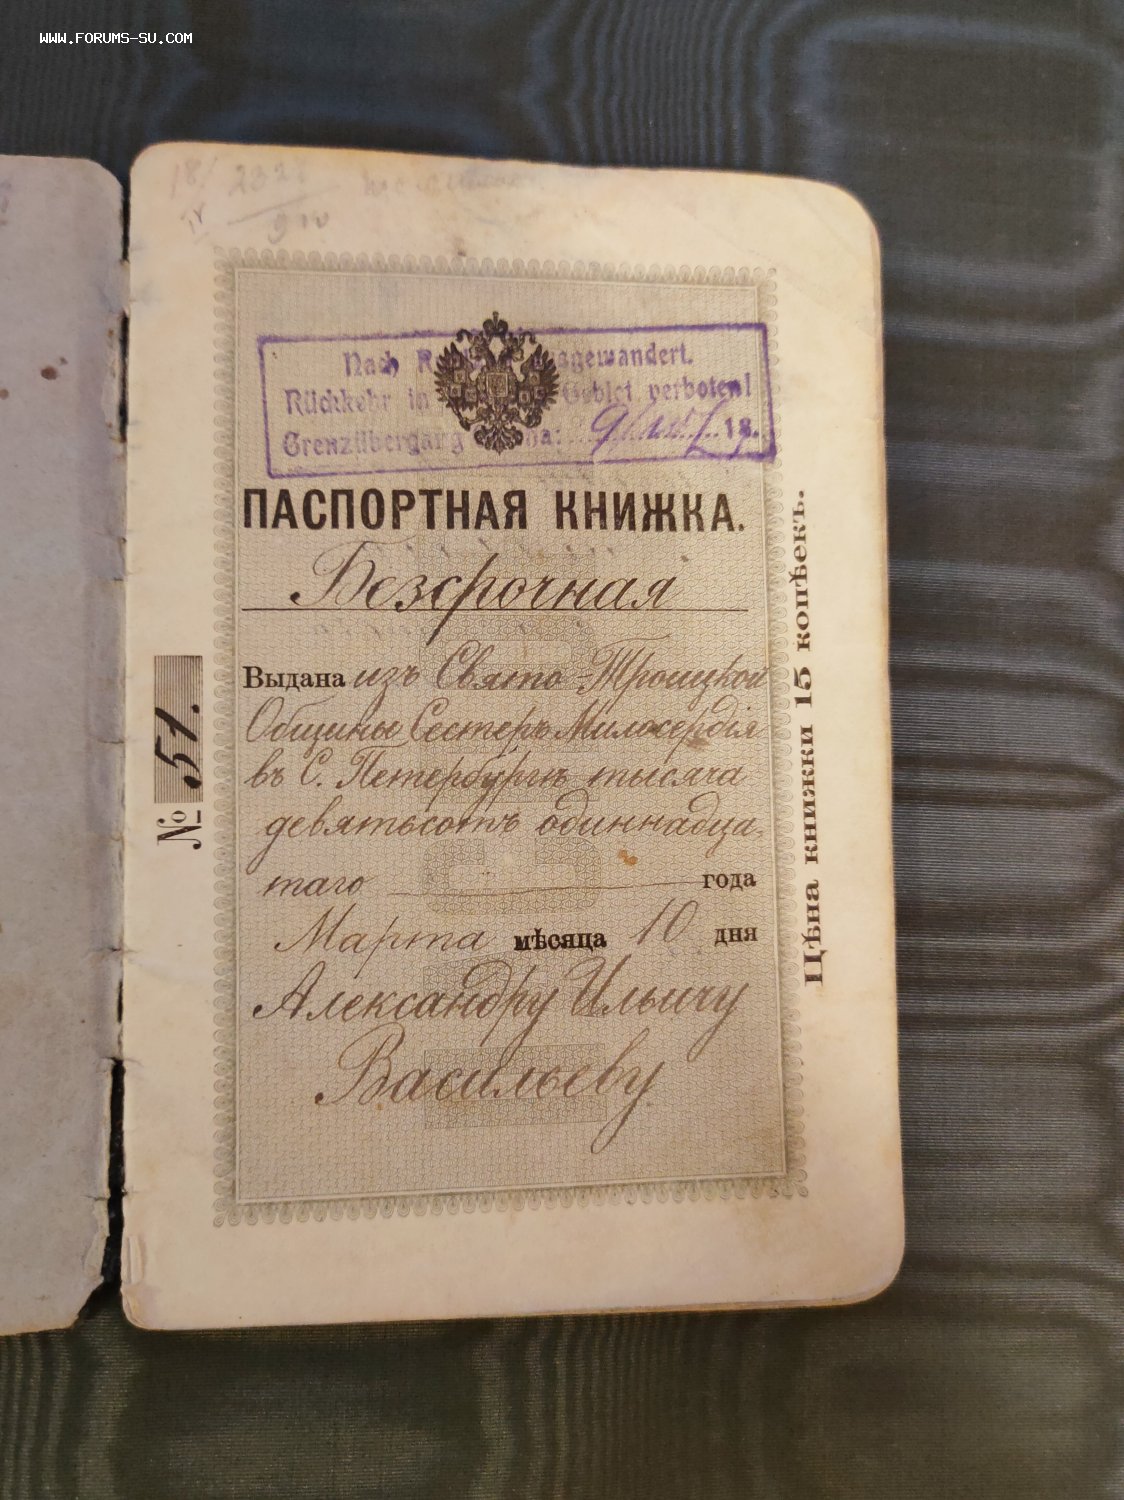 WWW.FORUMS-SU.COM
2827
Nach ausgewandert.
Rückkehr in Gebiet verboten!
Grenzübergang 18.
ПАСПОРТНАЯ КНИЖКА.
Безсрочная
Выдана изъ Свято-Троицкой
Общины Сестеръ Милосердія
въ С. Петербургѣ тысяча
девятьсотъ одиннадца-
таго года
Марта мѣсяца 10 дня
Александру Ильичу
Васильеву
№ 51.
Цѣна книжки 15 копѣекъ.